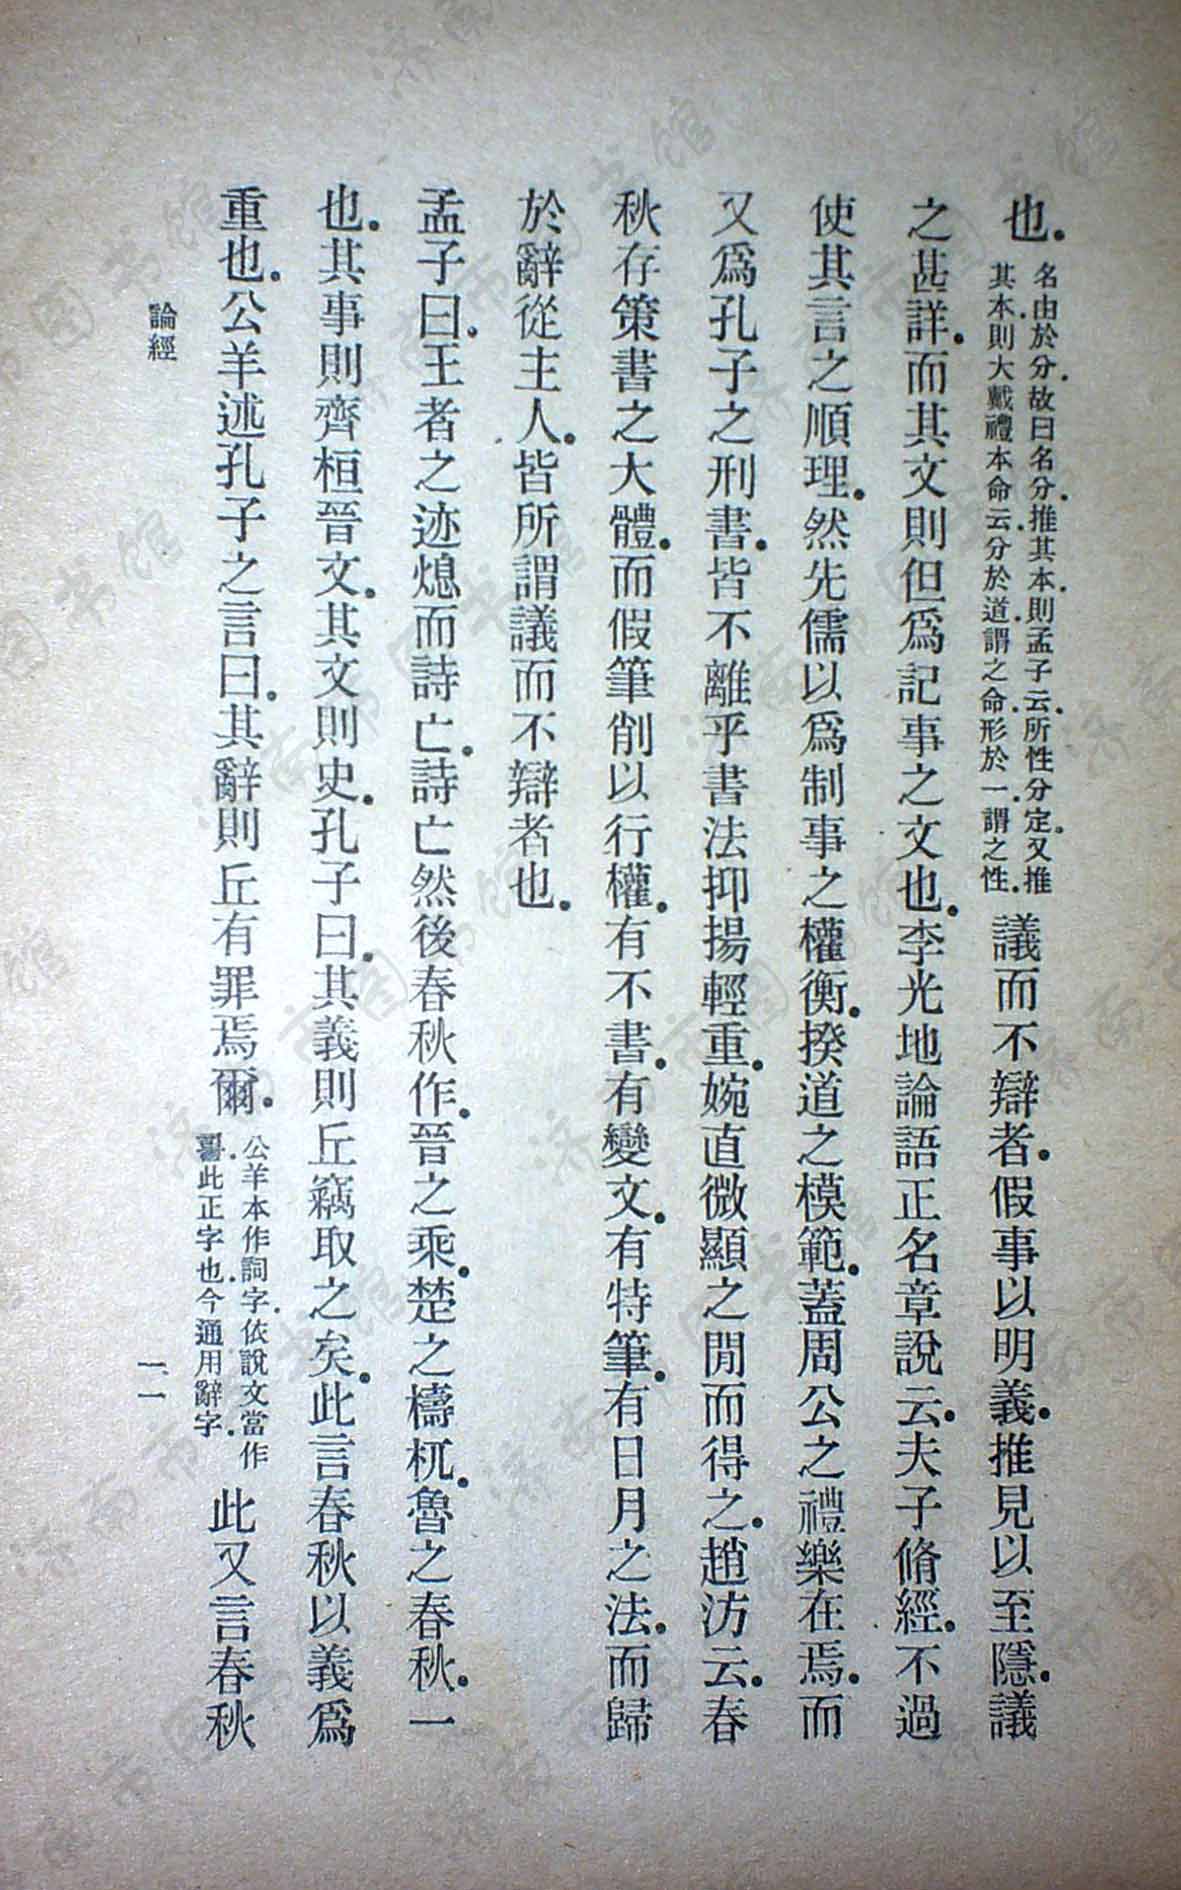 也。名由於分。故曰名分。推其本。則孟子云。所性分定。又推其本。則大戴禮本命云。分於道謂之命。形於一。謂之性。議而不辯者。假事以明義。推見以至隱。議
之甚詳。而其文則但爲記事之文也。李光地論語正名章說云。夫子脩經。不過
使其言之順理。然先儒以爲制事之權衡。揆道之模範。蓋周公之禮樂在焉。而
又爲孔子之刑書。皆不離乎書法抑揚輕重。婉直微顯之閒而得之。趙汸云。春
秋存策書之大體。而假筆削以行權。有不書。有變文。有特筆。有日月之法。而歸
於辭從主人。皆所謂議而不辯者也。
孟子曰。王者之迹熄而詩亡。詩亡然後春秋作。晉之乘。楚之檮杌。魯之春秋。一
也。其事則齊桓晉文。其文則史。孔子曰。其義則丘竊取之矣。此言春秋以義爲
重也。公羊述孔子之言曰。其辭則丘有罪焉爾。公羊本作詞字。依說文當作。此正字也。今通用辭字。此又言春秋
論經
一一